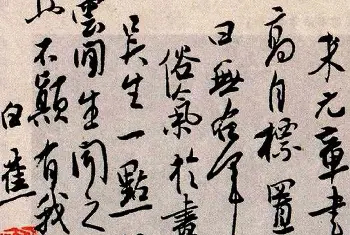 米元章書
高自標置
曰無右軍
俗氣於書
吳生一點
雲間生聞之
不顛有我
白蕉